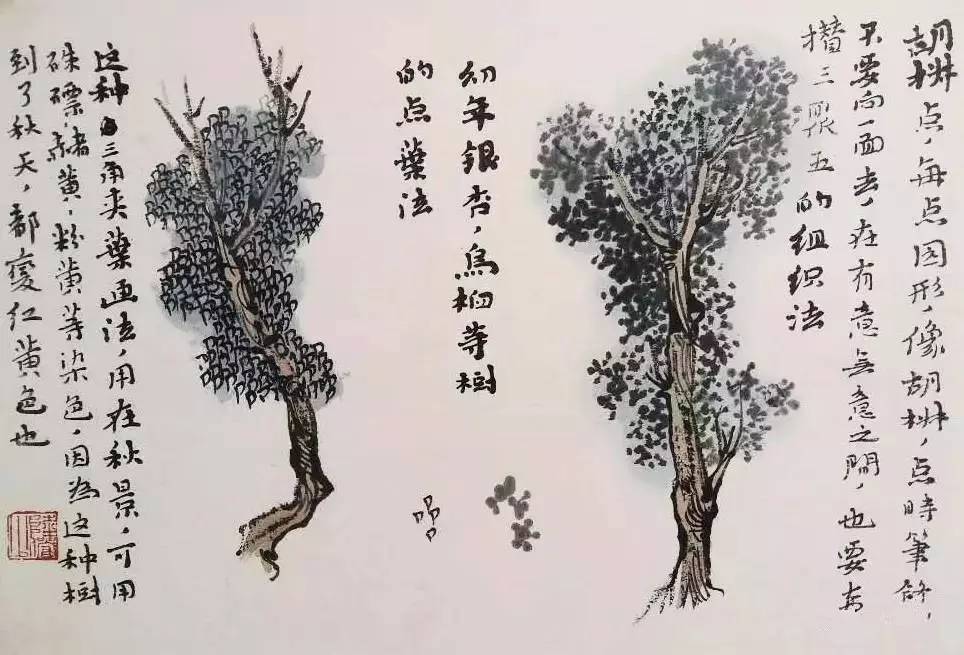 胡椒点，每点园形，像胡椒，点時筆鋒，
不要向一面去，在有意無意之間，也要有
攒三聚五的组织法
幼年银杏，烏桕等樹
的点葉法
这种三角夹葉画法，用在秋景，可用
硃磦赭黄，粉黄等染色，因為这种树
到了秋天，都變红黄色也